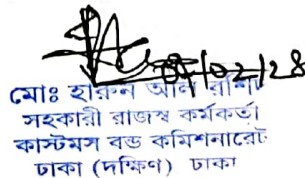 ০৪/০২/২৪
মোঃ হারুন অর রশিদ
সহকারী রাজস্ব কর্মকর্তা
কাস্টমস বন্ড কমিশনারেট
ঢাকা (দক্ষিণ) ঢাকা